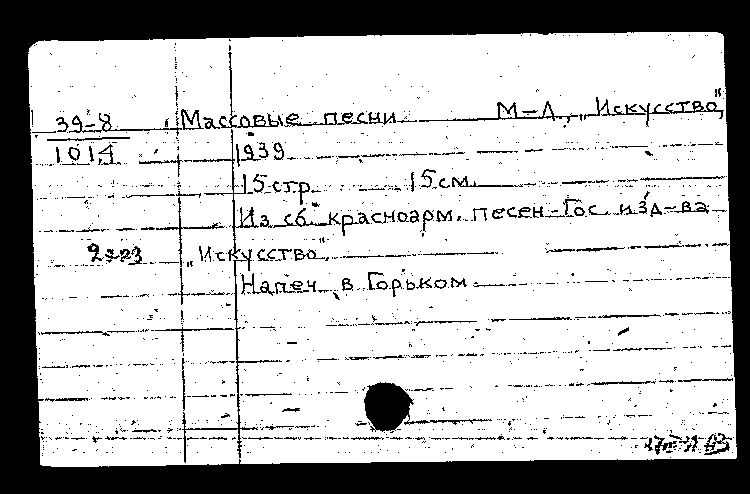 39-8 Массовые песни М-Л, „Искусство",
1014 1939
15 стр. 15 см.
Из сб. красноарм. песен Гос. изд-ва
„Искусство".
Напеч. в Горьком